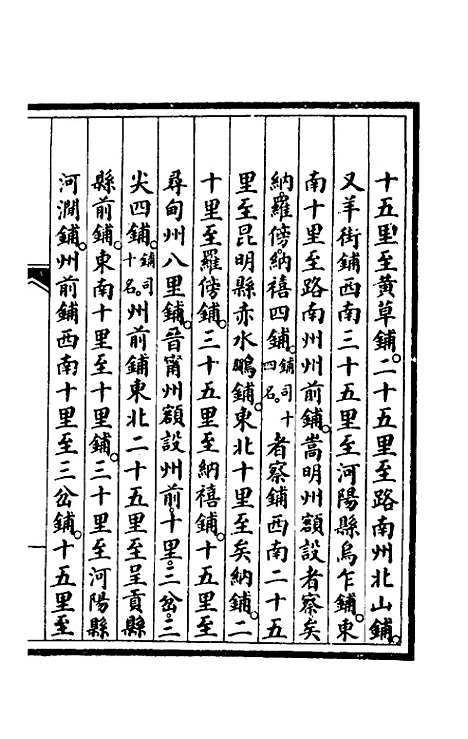 十五里至黃草鋪。二十五里至路南州北山鋪。
又羊街鋪西南三十五里至河陽縣烏乍鋪。東
南十里至路南州州前鋪。嵩明州額設者察矣
納。羅傍納禧四鋪。鋪司十四名。者察鋪西南二十五
里至昆明縣赤水鵬鋪。東北十里至矣納鋪。二
十里至羅傍鋪。三十五里至納禧鋪。十里至
尋甸州八里鋪。晉甯州額設州前。十里。三岔。三
尖四鋪。鋪司十名。州前鋪東北二十五里至呈貢縣
縣前鋪。東南十里至十里鋪。三十里至河陽縣
河澗鋪。州前鋪西南十里至三岔鋪。十五里至